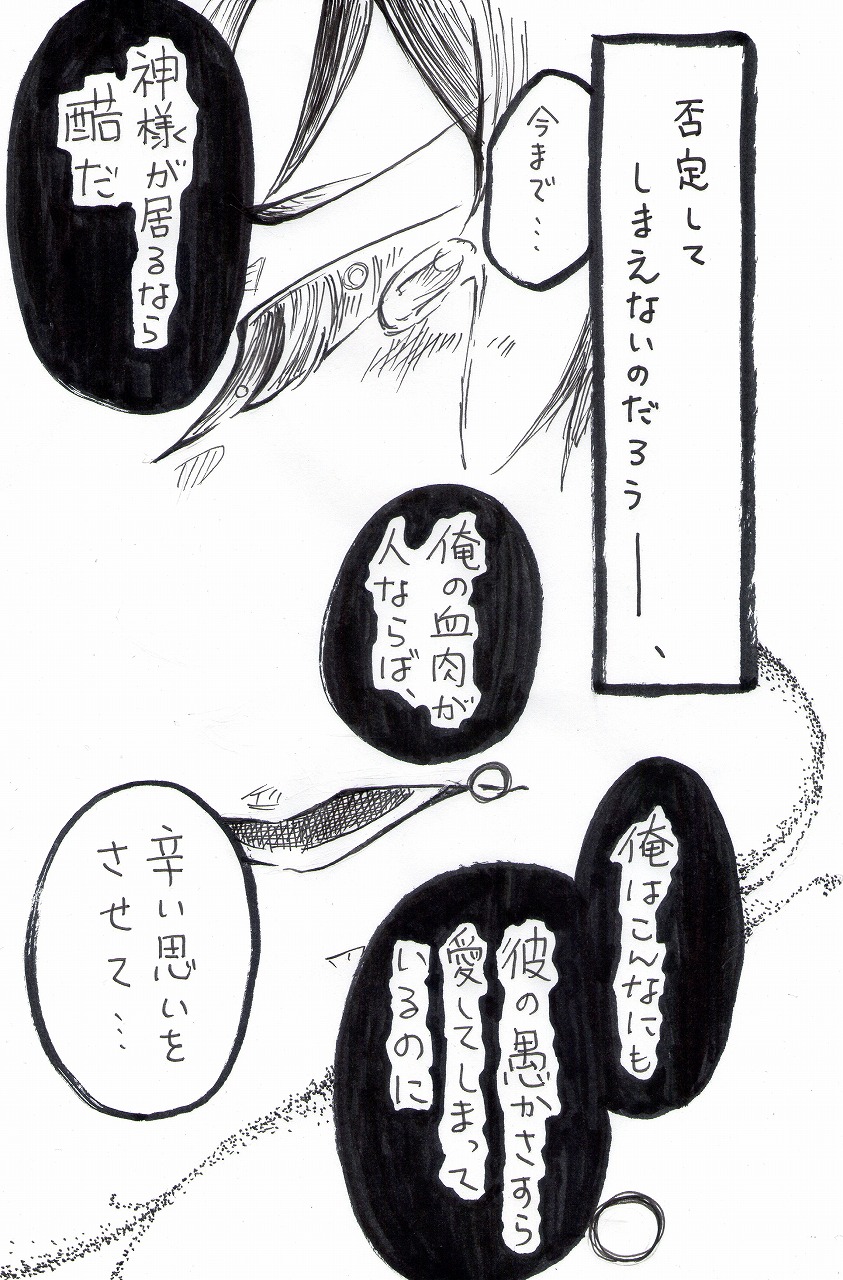 否定して
しまえないのだろう——、
今まで…
神様が居るなら
酷だ
俺の血肉が
人ならば、
俺はこんなにも
彼の愚かさすら
愛してしまって
いるのに
辛い思いを
させて…